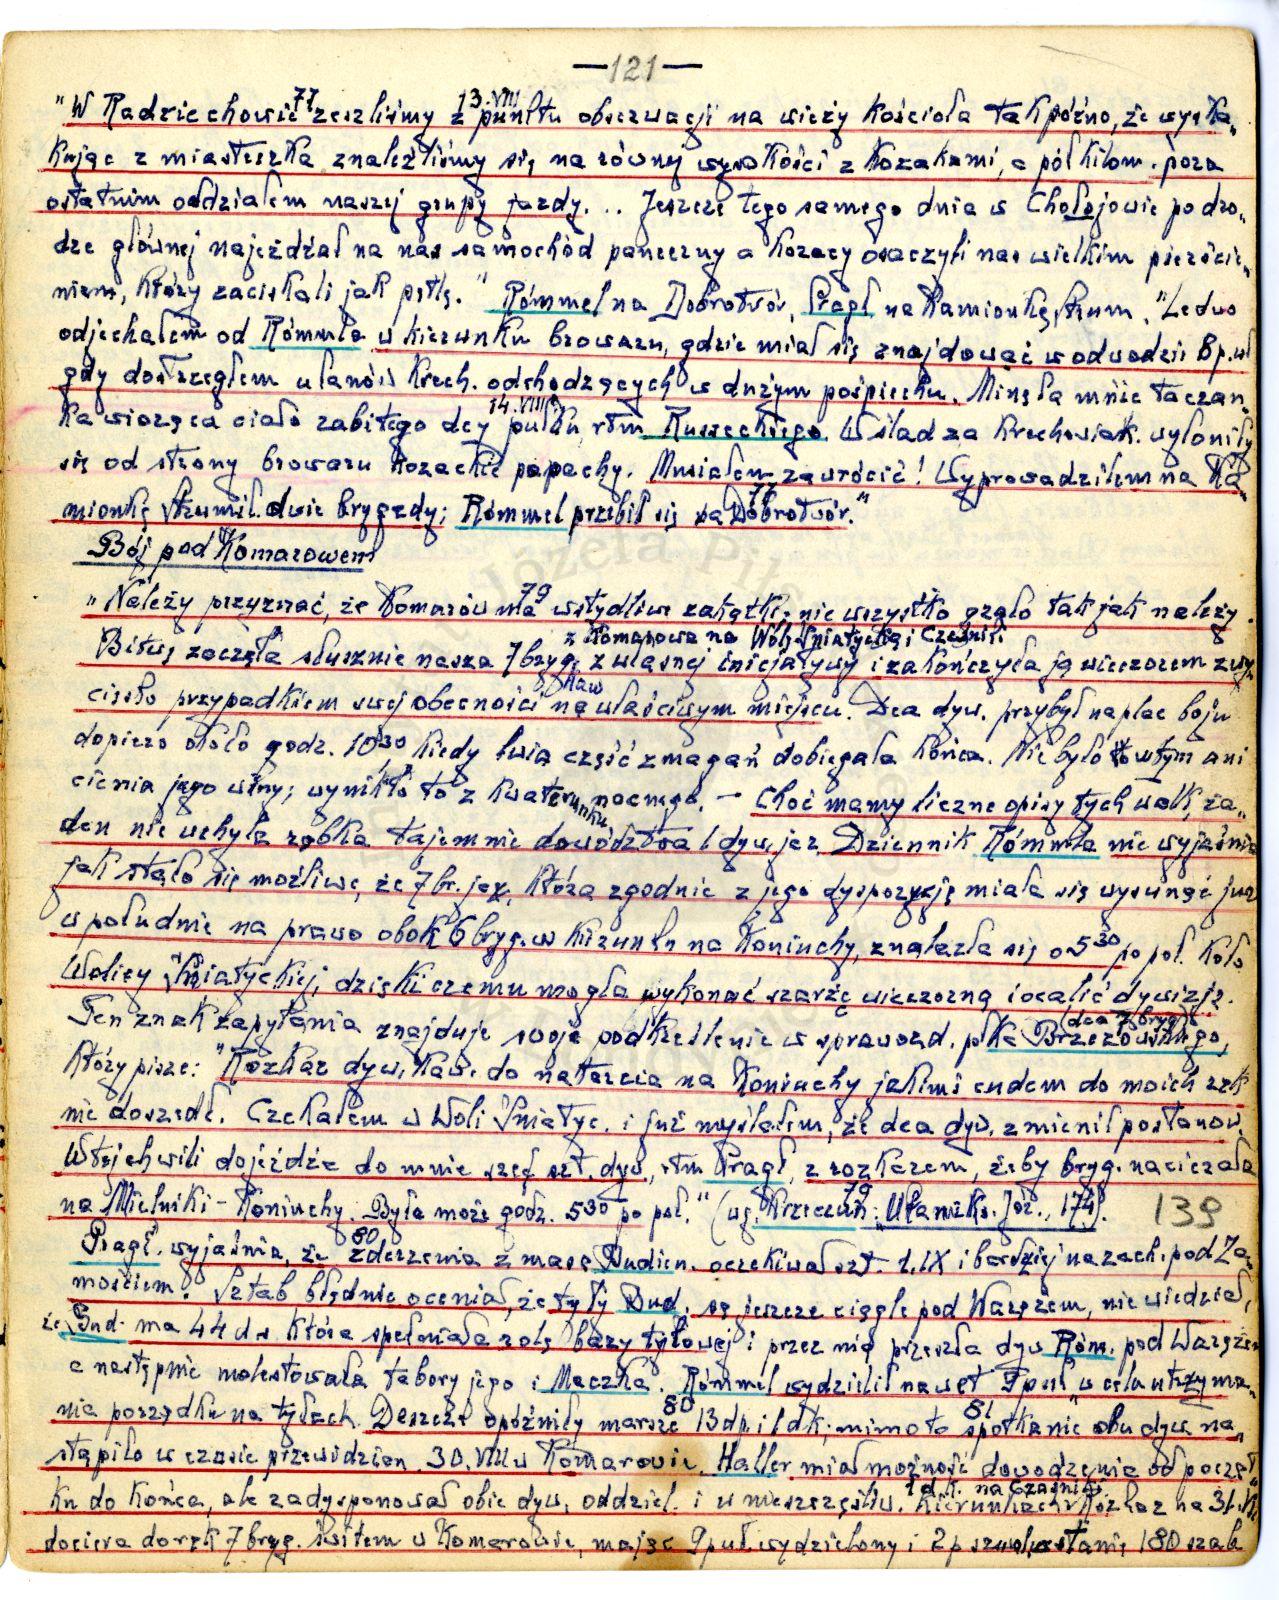 —121—
77 13.VIII
"W Radziechowie zeszliśmy z punktu obserwacji na wieży kościoła tak późno, że wyska-
kując z miasteczka znaleźliśmy się na równej wysokości z Kozakami, o pół kilom. poza
ostatnim oddziałem naszej grupy jazdy... Jeszcze tego samego dnia w Chołojowie po dro-
dze głównej najeżdżał na nas samochód pancerny a Kozacy osaczyli nas wielkim pierście-
niem, który zaciskali jak pętlę." Rómmel na Dobrotwór, Pragł na Kamionkę strum. "Ledwo
odjechałem od Rómmla w kierunku browaru, gdzie miał się znajdować w odwodzie 8 p. uł
gdy dostrzegłem ułanów Krech. odchodzących w dużym pośpiechu. Minęła mnie taczan-
14.VIII
ka wioząca ciało zabitego dcy pułku, rtm Russeckiego. W ślad za Krechowiak. wyłoniły
się od strony browaru kozackie papachy. Musiałem zawrócić! Wyprowadziłem na Ka-
mionkę Strumił. dwie brygady; Rómmel przebił się na Dobrotwór."
Bój pod Komarowem
79
"Należy przyznać, że Komarów ma wstydliwe zakątki; nie wszystko grało tak jak należy.
z Komarowa na Wolę Śniatycką i Cześniki
Bitwę zaczęła słusznie nasza 7 bryg. z własnej inicjatywy i zakończyła ją wieczorem zwy-
Kaw
cięsko przypadkiem swej obecności na właściwym miejscu. Dca dyw. przybył na plac boju
dopiero około godz. 10³⁰ kiedy lwia część zmagań dobiegała końca. Nie było w tym ani
cienia jego winy; wynikło to z kwaterunku nocnego. — Choć mamy liczne opisy tych walk, ża-
den nie uchyla rąbka tajemnic dowództwa 1 dyw. jaz. Dziennik Rómmla nie wyjaśnia
jak stało się możliwe, że 7 br. jaz., która zgodnie z jego dyspozycją miała się wysunąć już
w południe na prawo obok 6 bryg. w kierunku na Koniuchy, znalazła się o 5³⁰ po poł. koło
Wolicy Śniatyckiej, dzięki czemu mogła wykonać szarżę wieczorną i ocalić dywizję.
Ten znak zapytania znajduje swoje podkreślenie w sprawozd. płka Brzezowskiego,
(dca 7 bryg)
który pisze: "Rozkaz dyw. kaw. do natarcia na Koniuchy jakimś cudem do moich rąk
nie doszedł. Czekałem w Woli Śniatyc. i już myślałem, że dca dyw. zmienił postanow.
W tej chwili dojeżdża do mnie szef szt. dyw., rtm Pragł, z rozkazem, żeby bryg. nacierała
79
na Mielniki - Koniuchy. Była może godz. 5³⁰ po poł." (wg. Krzeczun.: Ułan. Ks. Józ., 174). 139
80
Pragł. wyjaśnia, że zderzenia z masą Budien. oczekiwał szt. 1.IX i bardziej na zach. pod Za-
mościem. Sztab błędnie oceniał, że tyły Bud. są jeszcze ciągle pod Warężem, nie wiedział,
że Bud. ma 44 ds. która spełniała rolę bazy tyłowej i przez nią przeszła dyw Róm. pod Warężem
a następnie molestowała tabory jego i Maczka. Rómmel wydzielił nawet 9 puł "w celu utrzyma-
nia porządku na tyłach. Deszcze opóźniły marsze 13 dp. i 1 dk; mimo to spotkanie obu dyw na-
80 81
stąpiło w czasie przewidzian. 30.VIII w Komarowie. Haller miał możność dowodzenia od począt-
ku do końca, ale zadysponował obie dyw. oddziel. i w nieszczęśliw. kierunkach. Rozkaz na 31.VIII
1 d.k. na Cześniki
dociera do rąk 7 bryg. świtem w Komarowie, mając 9 puł wydzielony i 2 p szwol. w stanie 180 szab